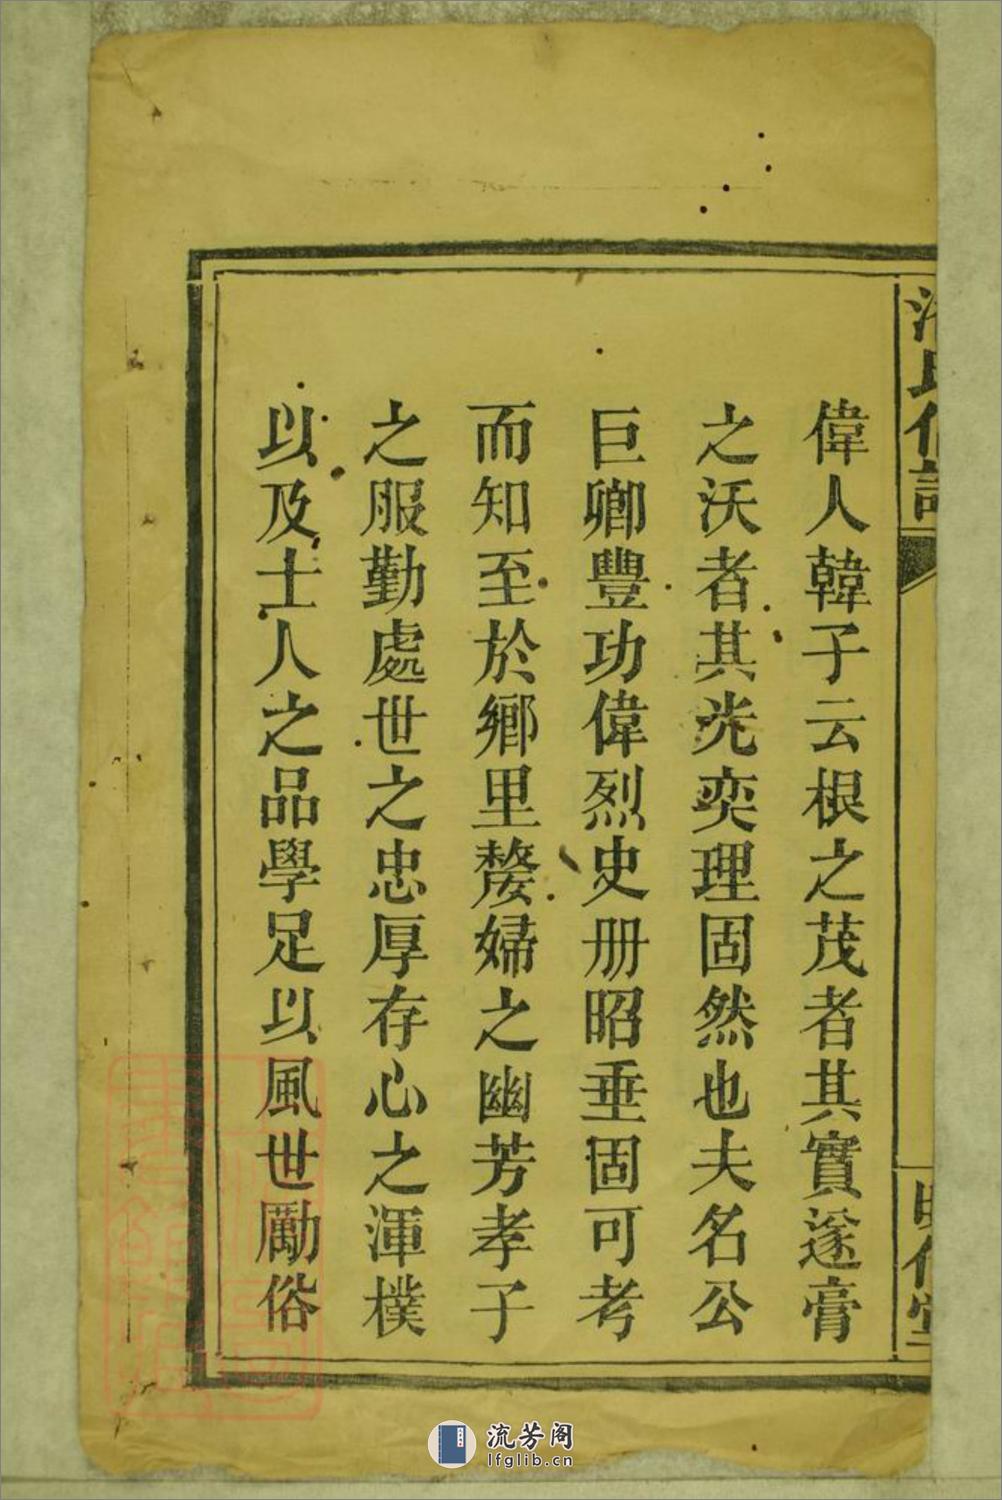 偉人韓子云根之茂者其實遂膏
之沃者其光奕理固然也夫名公
巨卿豐功偉烈史册昭垂固可考
而知至於鄉里嫠婦之幽芳孝子
之服勤處世之忠厚存心之渾樸
以及士人之品學足以風世勵俗
流芳阁
lfglib.cn